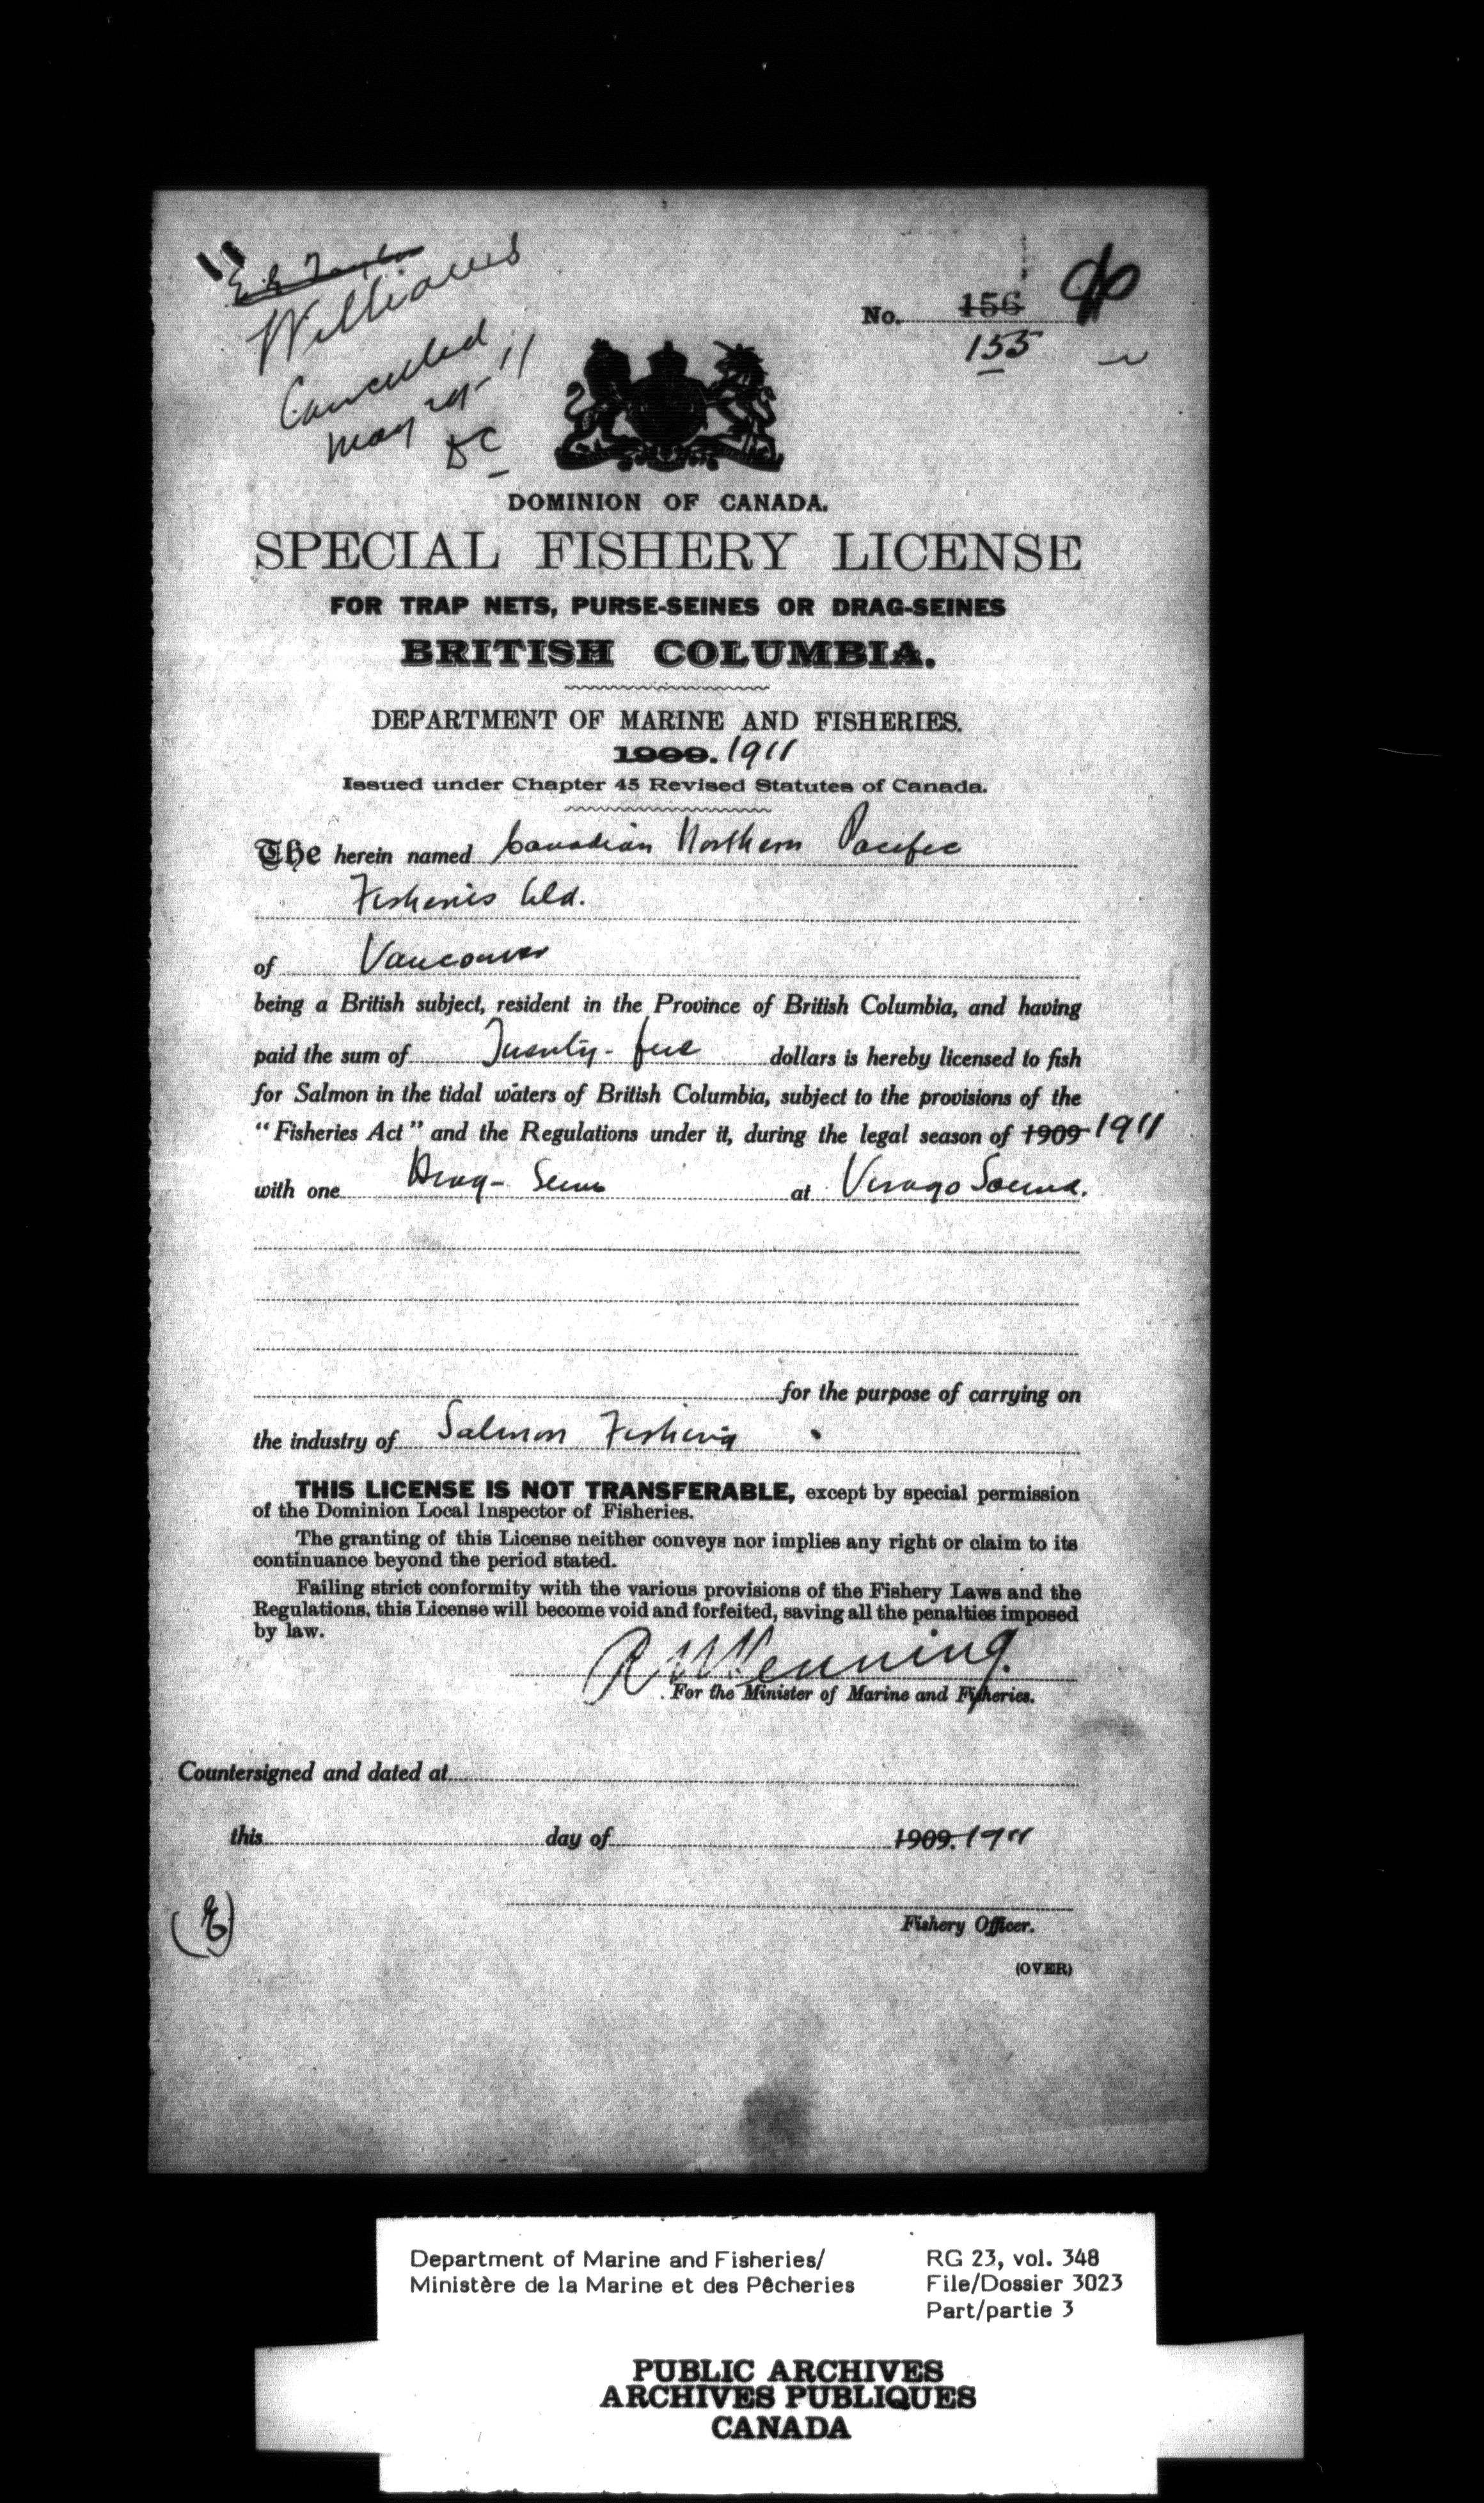 E. G. Taylor
Williams
Cancelled
May 29-11
DC
No. 156
155
DOMINION OF CANADA.
SPECIAL FISHERY LICENSE
FOR TRAP NETS, PURSE-SEINES OR DRAG-SEINES
BRITISH COLUMBIA.
DEPARTMENT OF MARINE AND FISHERIES.
1909. 1911
Issued under Chapter 45 Revised Statutes of Canada.
The herein named Canadian Northern Pacific
Fisheries Ltd.
of Vancouver
being a British subject, resident in the Province of British Columbia, and having
paid the sum of Twenty-five dollars is hereby licensed to fish
for Salmon in the tidal waters of British Columbia, subject to the provisions of the
"Fisheries Act" and the Regulations under it, during the legal season of 1909 1911
with one Drag-Seine at Virago Sound.
for the purpose of carrying on
the industry of Salmon Fishing
THIS LICENSE IS NOT TRANSFERABLE, except by special permission
of the Dominion Local Inspector of Fisheries.
The granting of this License neither conveys nor implies any right or claim to its
continuance beyond the period stated.
Failing strict conformity with the various provisions of the Fishery Laws and the
Regulations, this License will become void and forfeited, saving all the penalties imposed
by law.
R N Venning.
For the Minister of Marine and Fisheries.
Countersigned and dated at
this day of 1909. 1911
Fishery Officer.
(OVER)
Department of Marine and Fisheries/
Ministère de la Marine et des Pêcheries
RG 23, vol. 348
File/Dossier 3023
Part/partie 3
PUBLIC ARCHIVES
ARCHIVES PUBLIQUES
CANADA